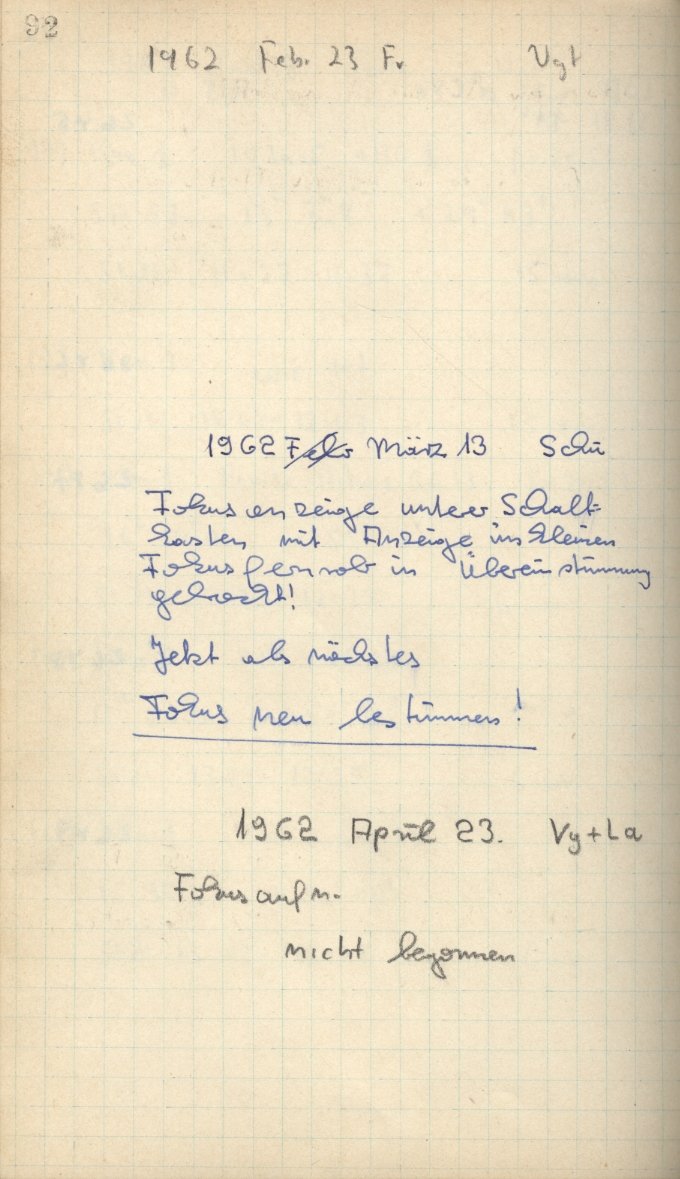 92
1962 Feb. 23 Fr Vgt
1962 Febr März 13 Schü
Fokusanzeige unterer Schalt=
kasten mit Anzeige im kleinen
Fokusfernrohr in Übereinstimmung
gebracht!
Jetzt als nächstes
Fokus neu bestimmen!
1962 April 23. Vy+La
Fokusaufn.
nicht begonnen